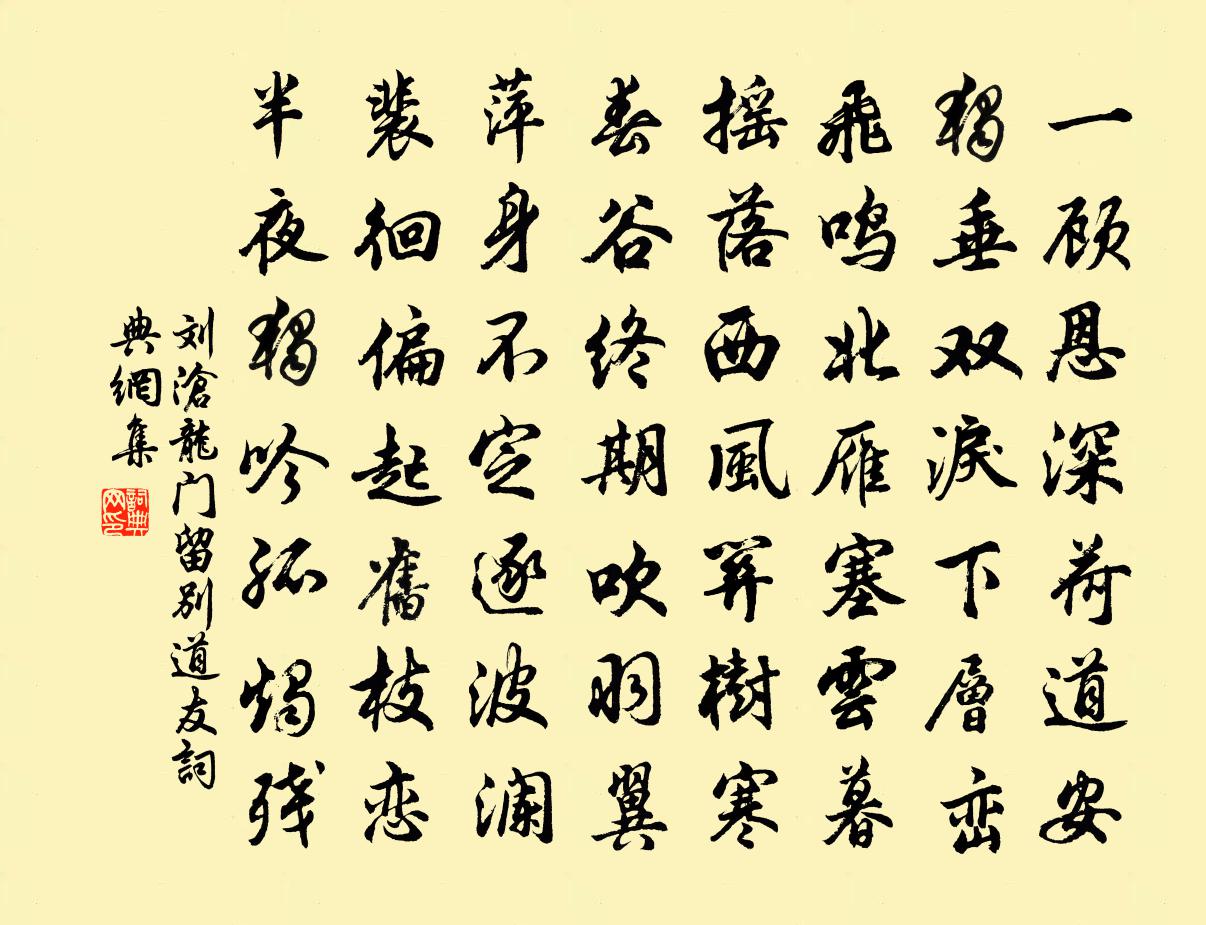 一顾恩深荷道安
独垂双淚下層峦
飛鸣北雁塞雲暮
摇落西風荓樹寒
春谷终期吹羽翼
萍身不定逐波澜
裴徊偏起舊枝恋
半夜独吟孤烛残
刘滄龍门留别道友詞
典網集
詞典
网印